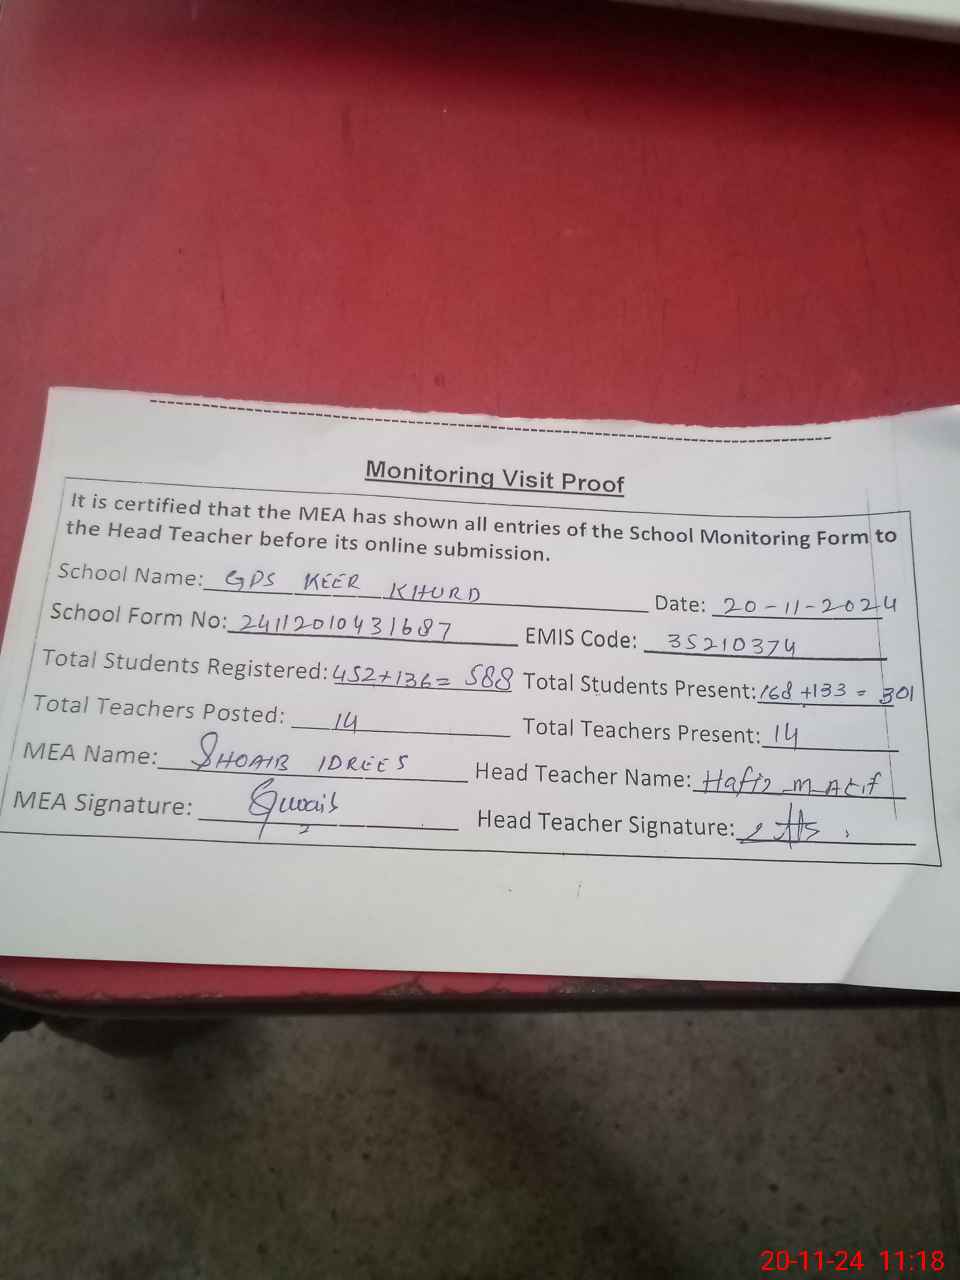 Monitoring Visit Proof
It is certified that the MEA has shown all entries of the School Monitoring Form to
the Head Teacher before its online submission.
School Name: GPS KEER KHURD Date: 20-11-2024
School Form No: 24112010431687 EMIS Code: 35210374
Total Students Registered: 452+136= 588 Total Students Present: 168+133 = 301
Total Teachers Posted: 14 Total Teachers Present: 14
MEA Name: SHOAIB IDREES Head Teacher Name: Hafiz M Atif
MEA Signature: Head Teacher Signature:
20-11-24 11:18